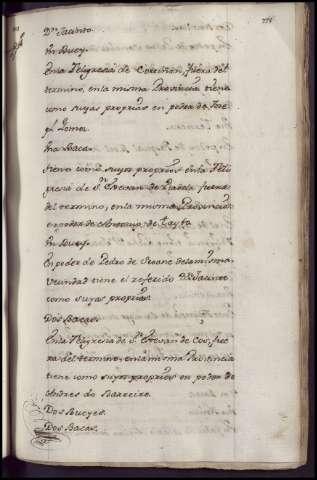 Dn Jacinto.
Un Buey.
En la Feligresia de Coreiron, fuera del
termino, en la misma Provincia tiene
como suyas proprias en poder de Jose
ph Lomes.
Una Baca.
tiene como suyas proprias en la Feli
gresia de Sn Estevan de Piadela fuera
del termino, en la misma Provincia
en poder de Antonio de tayto
Un Buey.
En poder de Pedro de Seoane de la misma
Vecindad tiene el referido Dn Jacinto
como suyas proprias.
Dos Bacas.
En la Feligresia de Sn Estevan de Cos, fue
ra del termino, en la misma Provincia
tiene como suyas proprias en poder de
Andres do Barreiro.
Dos Bueyes.
Dos Bacas.